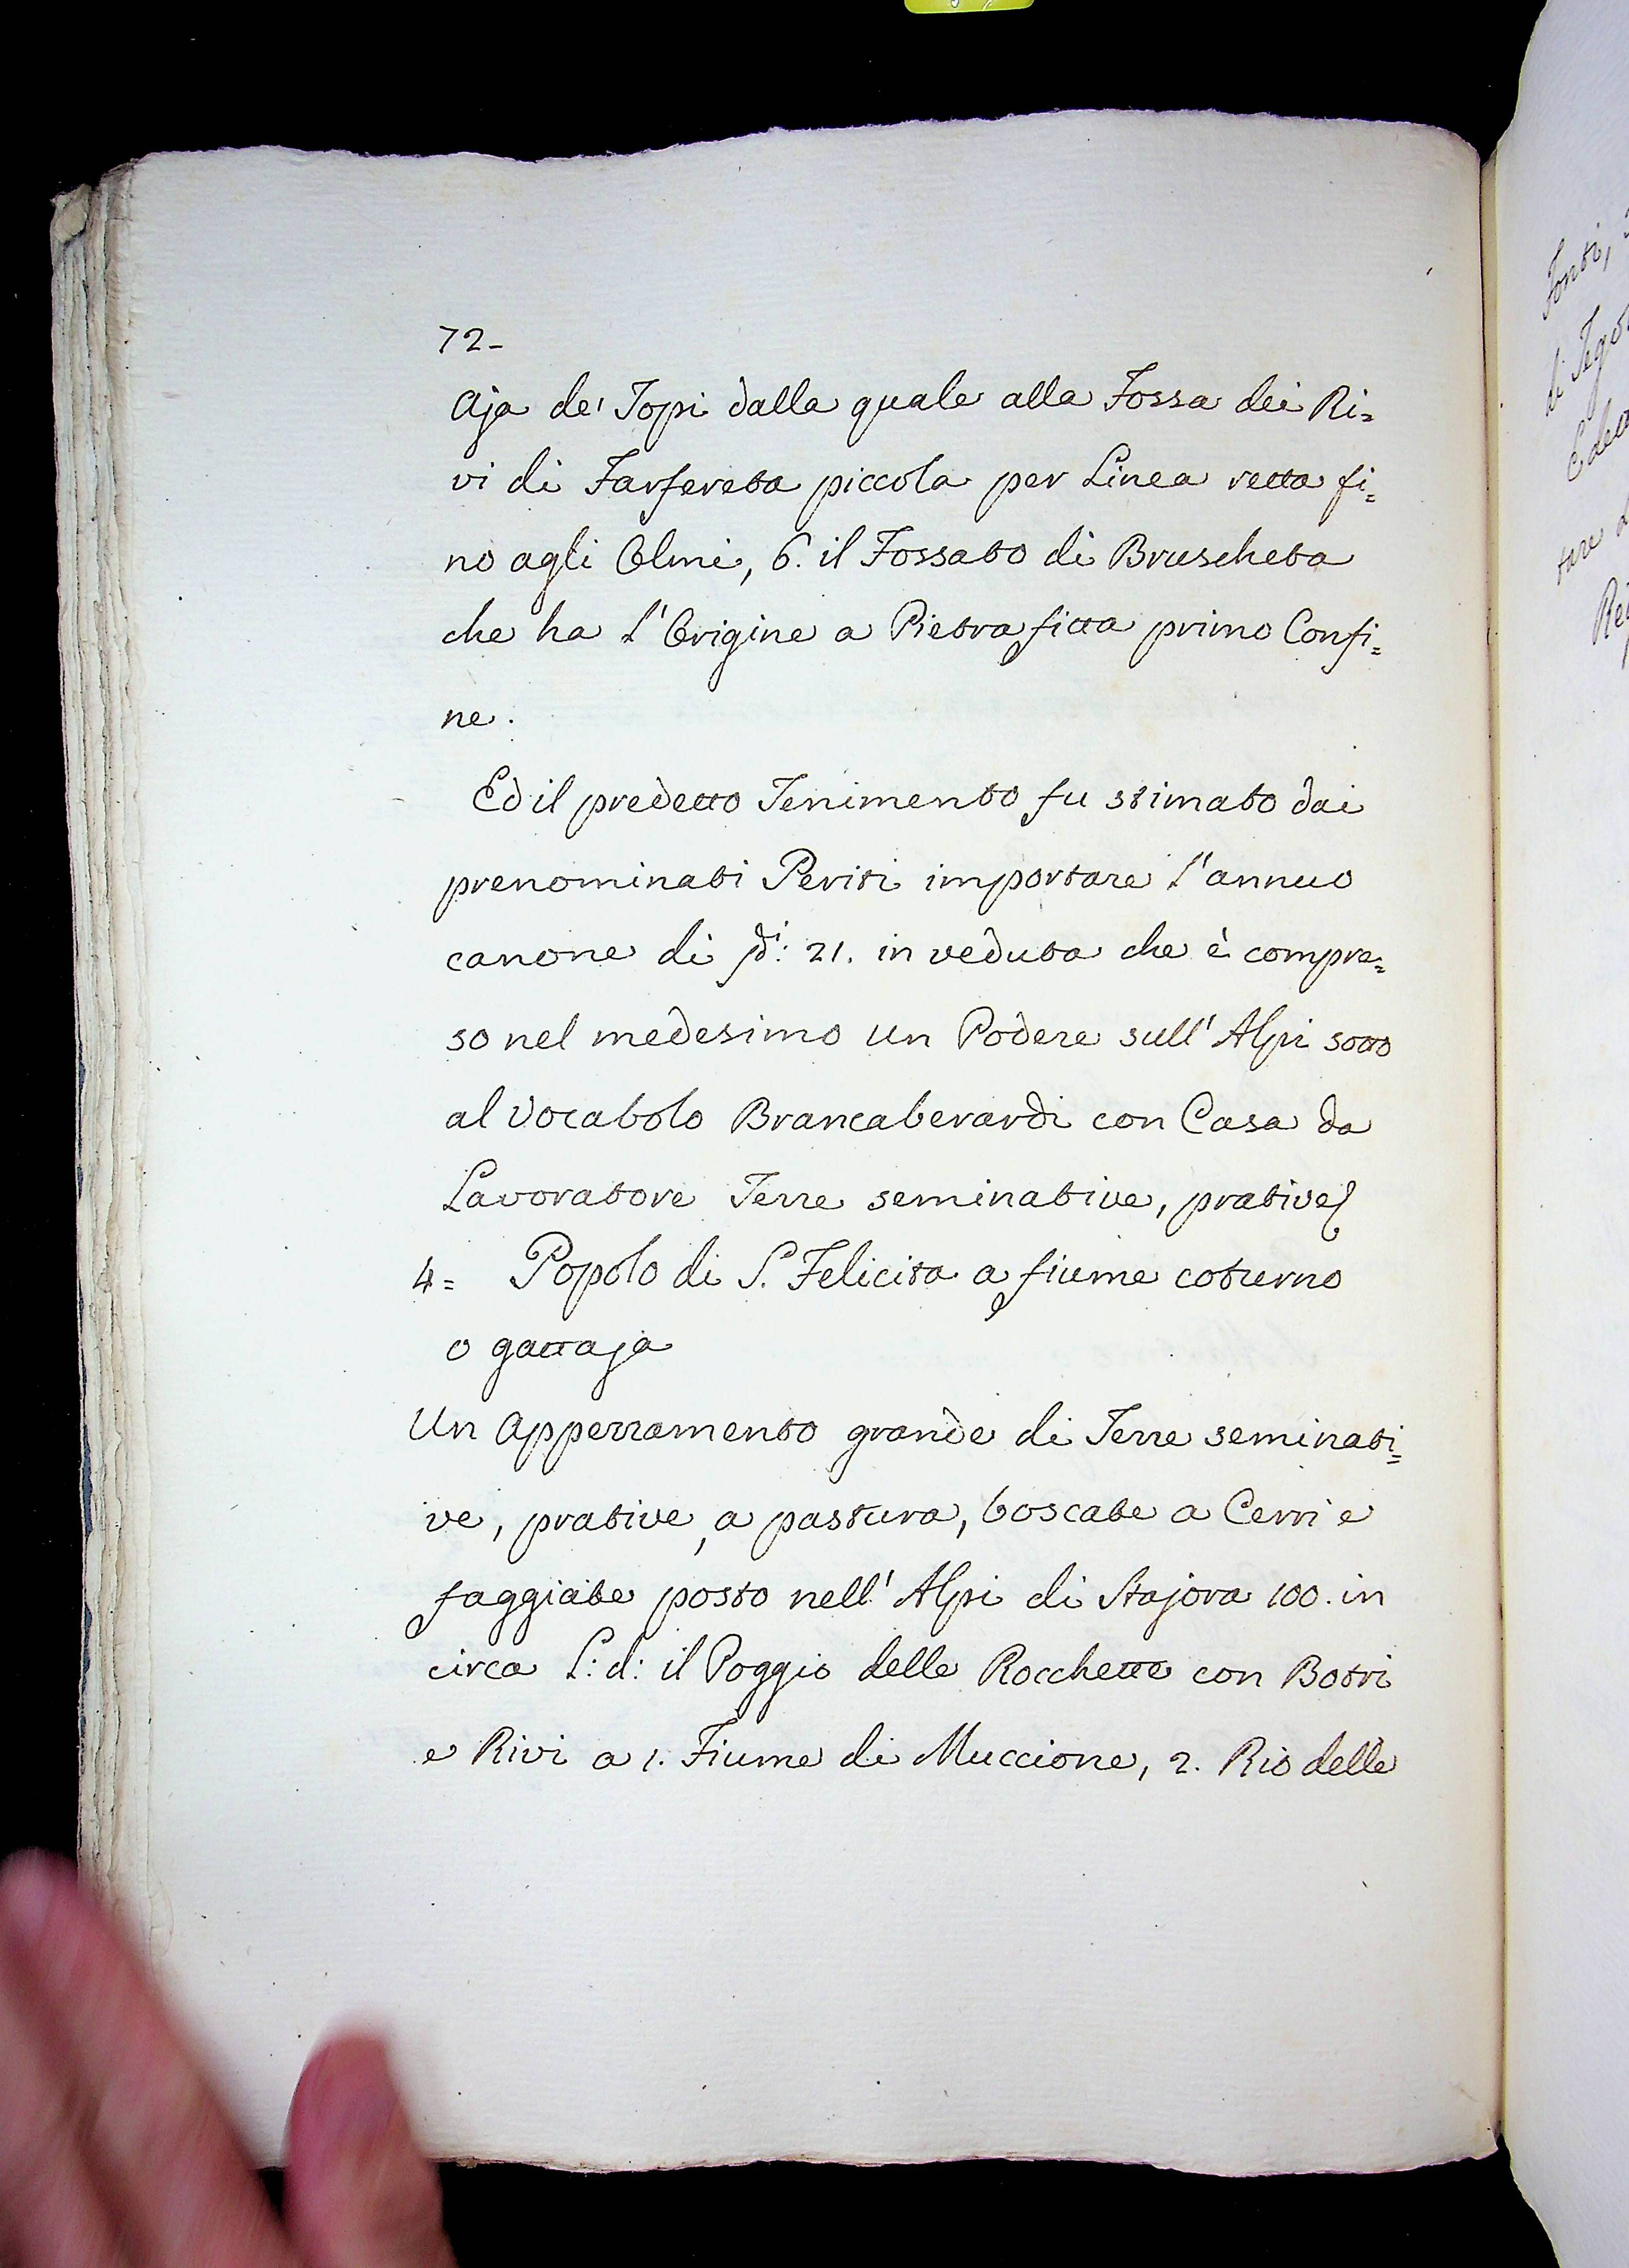 72-
Aja de' Topi dalla quale alla Fossa dei Ri=
vi di Farfereta piccola per Linea retta fi=
no agli Olmi, 6. il Fossato di Bruscheta
che ha l'Origine a Pietra fitta primo Confi=
ne.
Ed il predetto Tenimento fu stimato dai
prenominati Periti importare l'annuo
canone di 21. in veduta che è compre=
so nel medesimo un Podere sull'Alpi sotto
al Vocabolo Brancaberardi con Casa da
Lavoratore Terre seminative, prative
4= Popolo di S. Felicita a fiume coturno
o gattaja
Un Appezzamento grande di Terre seminati=
ve, prative, a pastura, boscate a Cerri e
faggiate posto nell'Alpi di Stajora 100. in
circa L: d: il Poggio delle Rocchette con Botri
e Rivi a 1. Fiume di Muccione, 2. Rio delle
Fonti,
di